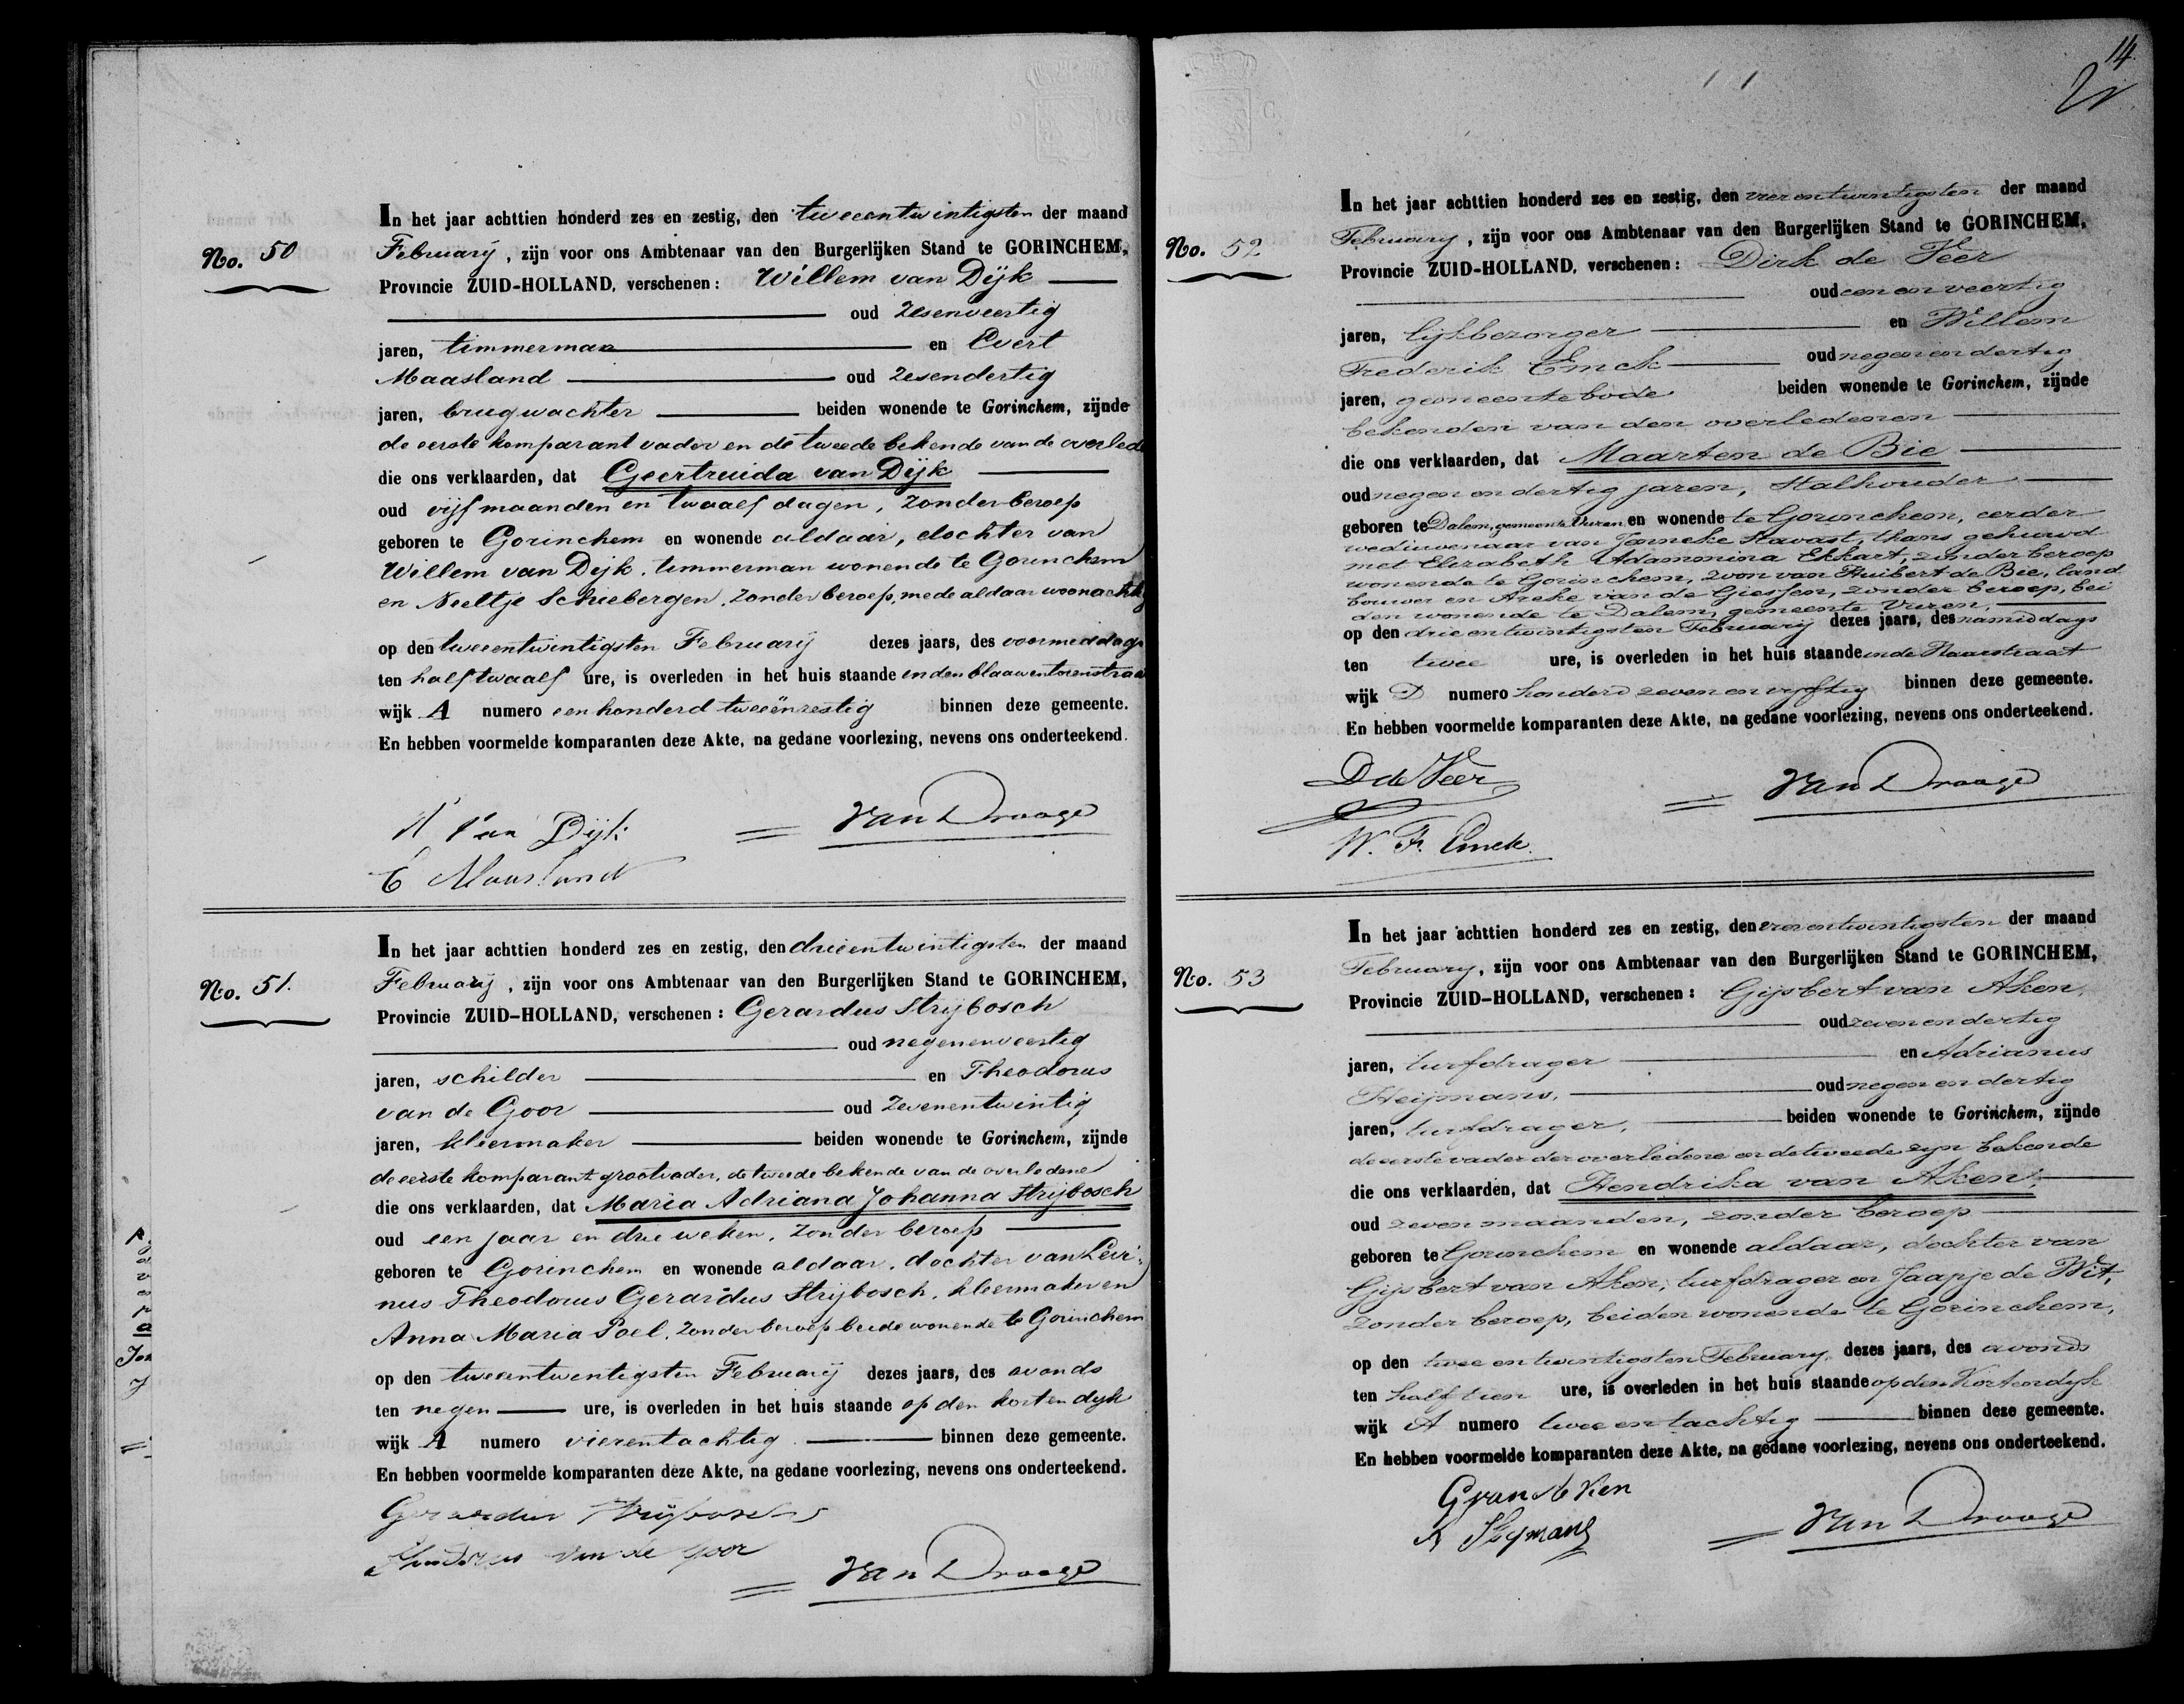 No. 50
In het jaar achttien honderd zes en zestig, den tweeentwintigsten der maand
February, zijn voor ons Ambtenaar van den Burgerlijken Stand te GORINCHEM,
Provincie ZUID-HOLLAND, verschenen: Willem van Dijk
oud zesenveertig
jaren, timmerman en Evert
Maasland oud zesendertig
jaren, brugwachter beiden wonende te Gorinchem, zijnde
de eerste komparant vader en de tweede bekende van de overlede
die ons verklaarden, dat Geertruida van Dijk
oud vijf maanden en twaalf dagen, zonder beroep
geboren te Gorinchem en wonende aldaar, dochter van
Willem van Dijk, timmerman wonende te Gorinchem
en Neeltje Schiebergen, zonder beroep, mede aldaar woonachtig
op den tweeentwintigsten February dezes jaars, des voormiddags
ten half twaalf ure, is overleden in het huis staande in den blaauwentorenstraat
wijk A numero een honderd tweeënzestig binnen deze gemeente.
En hebben voormelde komparanten deze Akte, na gedane voorlezing, nevens ons onderteekend.
W van Dijk
van Drooge
E Maasland
No. 51.
In het jaar achttien honderd zes en zestig, den drieentwintigsten der maand
February, zijn voor ons Ambtenaar van den Burgerlijken Stand te GORINCHEM,
Provincie ZUID-HOLLAND, verschenen: Gerardus Strijbosch
oud negenenveertig
jaren, schilder en Theodorus
van de Goor oud zevenentwintig
jaren, kleermaker beiden wonende te Gorinchem, zijnde
de eerste komparant grootvader, de tweede bekende van de overledene
die ons verklaarden, dat Maria Adriana Johanna Strijbosch
oud een jaar en drie weken, zonder beroep
geboren te Gorinchem en wonende aldaar, dochter van Levi-
nus Theodorus Gerardus Strijbosch, kleermaker en
Anna Maria Poel, zonder beroep beide wonende te Gorinchem
op den tweeentwentigsten February dezes jaars, des avonds
ten negen ure, is overleden in het huis staande op den korten dyk
wijk A numero vierentachtig binnen deze gemeente.
En hebben voormelde komparanten deze Akte, na gedane voorlezing, nevens ons onderteekend.
Gerardus Strijbosch
Theodorus van de Goor
van Drooge
14.
No. 52
In het jaar achttien honderd zes en zestig, den vierentwintigsten der maand
February, zijn voor ons Ambtenaar van den Burgerlijken Stand te GORINCHEM,
Provincie ZUID-HOLLAND, verschenen: Dirk de Veer
oud een en veertig
jaren, lijkbezorger en Willem
Frederik Emck oud negen en dertig
jaren, gemeentebode beiden wonende te Gorinchem, zijnde
bekenden van den overledenen
die ons verklaarden, dat Maarten de Bie
oud negen en dertig jaren, Stalhouder
geboren te Dalem, gemeente Vuren en wonende te Gorinchem, eerder
weduwenaar van Janneke Havast, thans gehuwd
met Elizabeth Adamonina Ekkart, zonder beroep
wonende te Gorinchem, zoon van Huibert de Bie, land
bouwer en Aneke van de Giessen, zonder beroep, bei
den wonende te Dalem, gemeente Vuren,
op den drie en twintigsten February dezes jaars, des namiddags
ten twee ure, is overleden in het huis staande in de Haarstraat
wijk D numero honderd zeven en vyftig binnen deze gemeente.
En hebben voormelde komparanten deze Akte, na gedane voorlezing, nevens ons onderteekend.
D de Veer
van Drooge
W. F. Emck.
No. 53
In het jaar achttien honderd zes en zestig, den vierentwintigsten der maand
February, zijn voor ons Ambtenaar van den Burgerlijken Stand te GORINCHEM,
Provincie ZUID-HOLLAND, verschenen: Gijsbert van Aken,
oud zeven en dertig
jaren, turfdrager en Adrianus
Heijmans, oud negen en dertig
jaren, turfdrager, beiden wonende te Gorinchem, zijnde
de eerste vader der overledene en de tweede zyn bekende
die ons verklaarden, dat Hendrika van Aken,
oud zeven maanden, zonder beroep
geboren te Gorinchem en wonende aldaar, dochter van
Gijsbert van Aken, turfdrager en Jaapje de Wit,
zonder beroep, beiden wonende te Gorinchem,
op den twee en twintigsten February dezes jaars, des avonds
ten half tien ure, is overleden in het huis staande op den Kortendijk
wijk A numero twee en tachtig binnen deze gemeente.
En hebben voormelde komparanten deze Akte, na gedane voorlezing, nevens ons onderteekend.
G van Aken
A Heymans
van Drooge